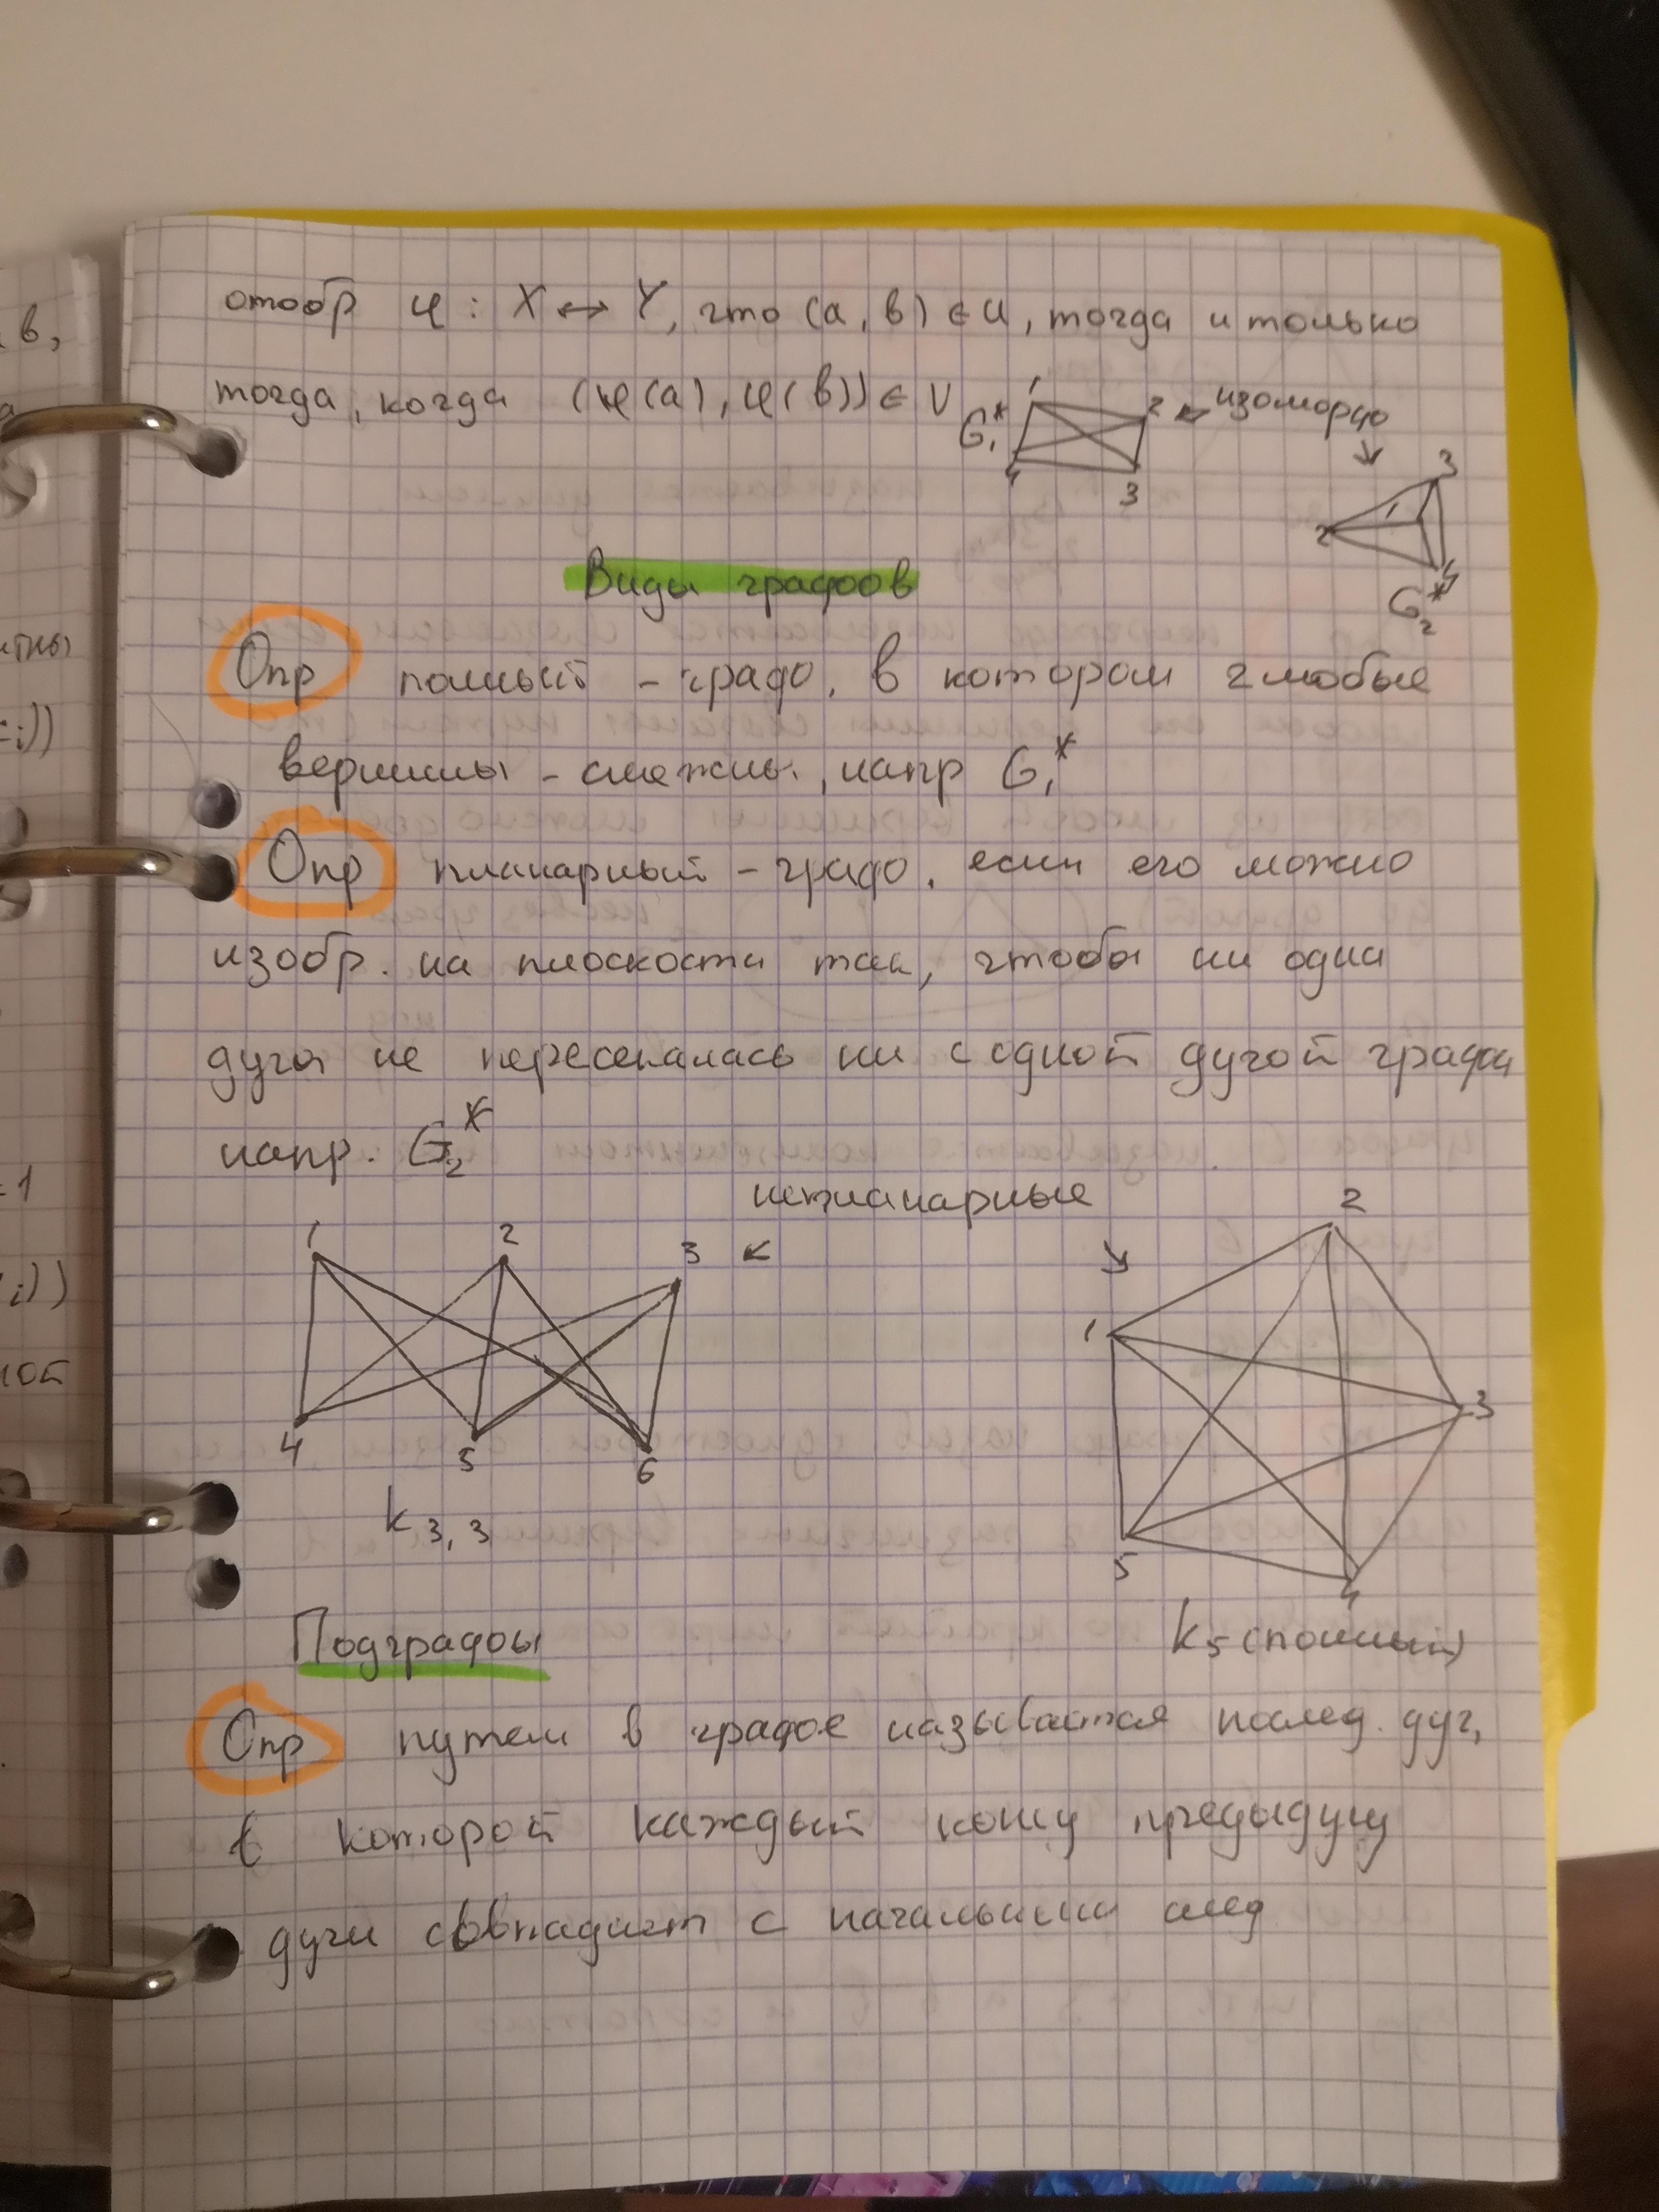 отобр φ : X ↔ Y, что (a, b) ∈ U, тогда и только
тогда, когда (φ(a), φ(b)) ∈ V
G₁* 1 2 3 4
← изоморф ↘
2 1 3 4
G₂*
Виды графов
Опр полный - граф, в котором 2 любые
вершины - смежны, напр G₁*
Опр планарный - граф, если его можно
изобр. на плоскости так, чтобы ни одна
дуга не пересекалась ни с одной дугой графа
напр. G₂*
непланарные
← ↘
1 2 3
4 5 6
K 3, 3
1 2 3 4 5
K 5 (полный)
Подграфы
Опр путем в графе называется послед. дуг,
в которой каждый конец предыдущ
дуги совпадает с начальным след
b,
i))
=1
i))